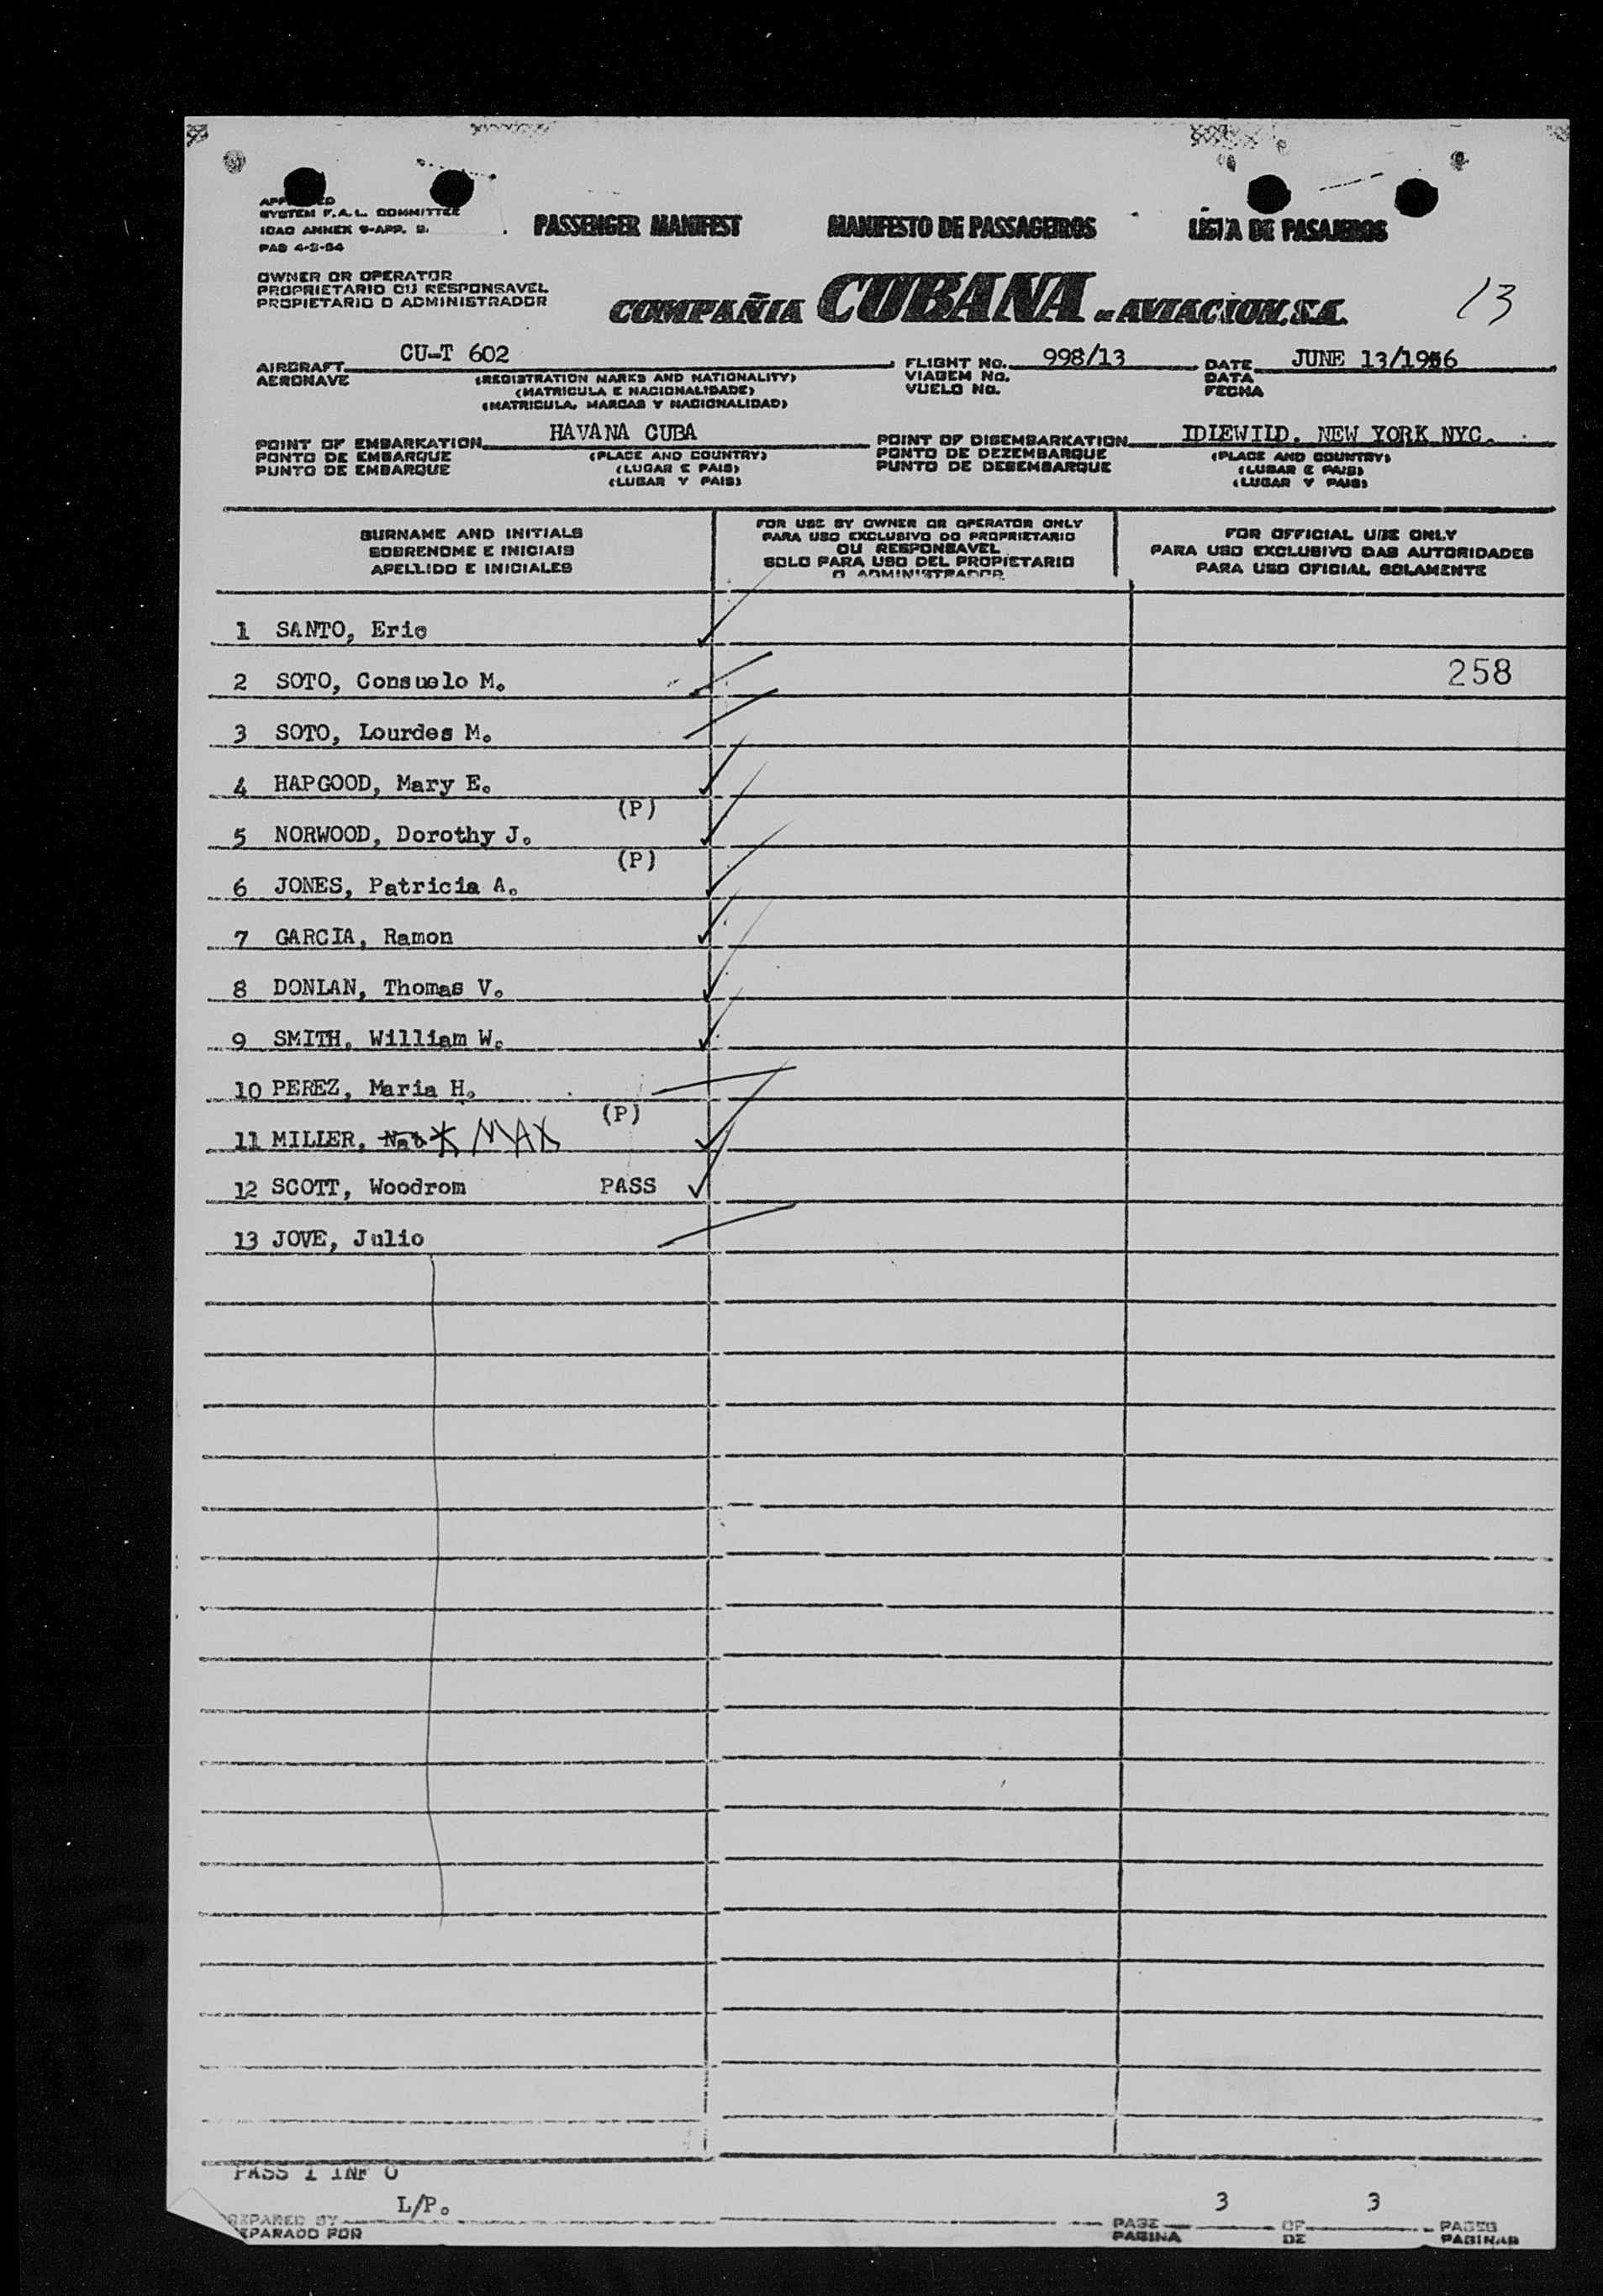 SYSTEM F.A.L. COMMITTEE
ICAO ANNEX 9-APP. 2.
PAS 4-2-54
PASSENGER MANIFEST MANIFESTO DE PASSAGEIROS LISTA DE PASAJEROS
OWNER OR OPERATOR
PROPRIETARIO OU RESPONSAVEL
PROPIETARIO O ADMINISTRADOR
COMPAÑIA CUBANA DE AVIACION, S.A.
13
AIRCRAFT CU-T 602 FLIGHT No. 998/13 DATE JUNE 13/1956
AERONAVE (REGISTRATION MARKS AND NATIONALITY) VIAGEM No. DATA
(MATRICULA E NACIONALIDADE) VUELO No. FECHA
(MATRICULA, MARCAS Y NACIONALIDAD)
POINT OF EMBARKATION HAVANA CUBA POINT OF DISEMBARKATION IDLEWILD. NEW YORK NYC.
PONTO DE EMBARQUE (PLACE AND COUNTRY) PONTO DE DEZEMBARQUE (PLACE AND COUNTRY)
PUNTO DE EMBARQUE (LUGAR E PAIS) PUNTO DE DESEMBARQUE (LUGAR E PAIS)
(LUGAR Y PAIS) (LUGAR Y PAIS)
SURNAME AND INITIALS
SOBRENOME E INICIAIS
APELLIDO E INICIALES
FOR USE BY OWNER OR OPERATOR ONLY
PARA USO EXCLUSIVO DO PROPRIETARIO
OU RESPONSAVEL
SOLO PARA USO DEL PROPIETARIO
O ADMINISTRADOR
FOR OFFICIAL USE ONLY
PARA USO EXCLUSIVO DAS AUTORIDADES
PARA USO OFICIAL SOLAMENTE
1 SANTO, Eric
2 SOTO, Consuelo M. 258
3 SOTO, Lourdes M.
4 HAPGOOD, Mary E.
(P)
5 NORWOOD, Dorothy J.
(P)
6 JONES, Patricia A.
7 GARCIA, Ramon
8 DONLAN, Thomas V.
9 SMITH, William W.
10 PEREZ, Maria H.
(P)
11 MILLER, MAX
12 SCOTT, Woodrom PASS
13 JOVE, Julio
PASS 1 INF 0
L/P.
PREPARED BY PAGE 3 OF 3 PAGES
PREPARADO POR PAGINA DE PAGINAS